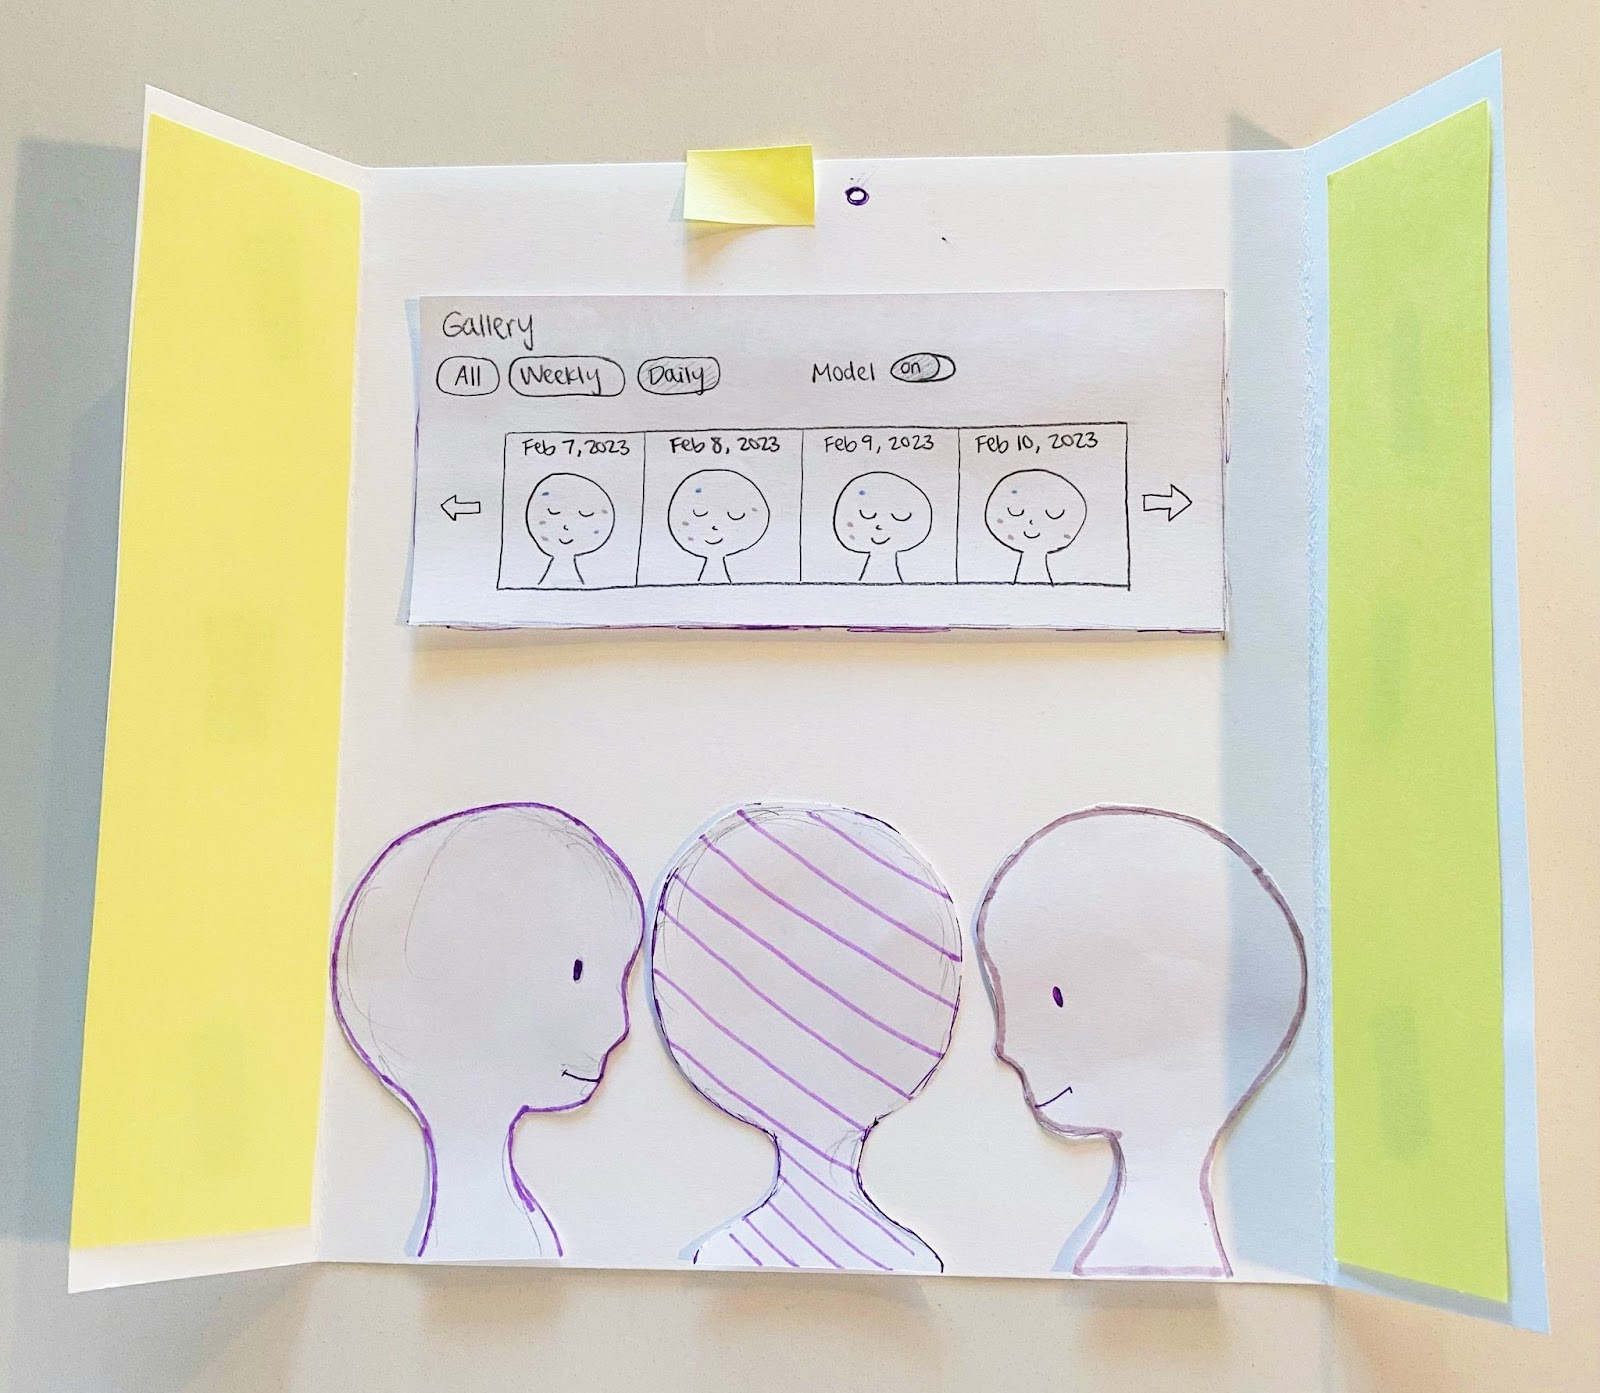 Gallery
All Weekly Daily Model on
Feb 7, 2023 Feb 8, 2023 Feb 9, 2023 Feb 10, 2023